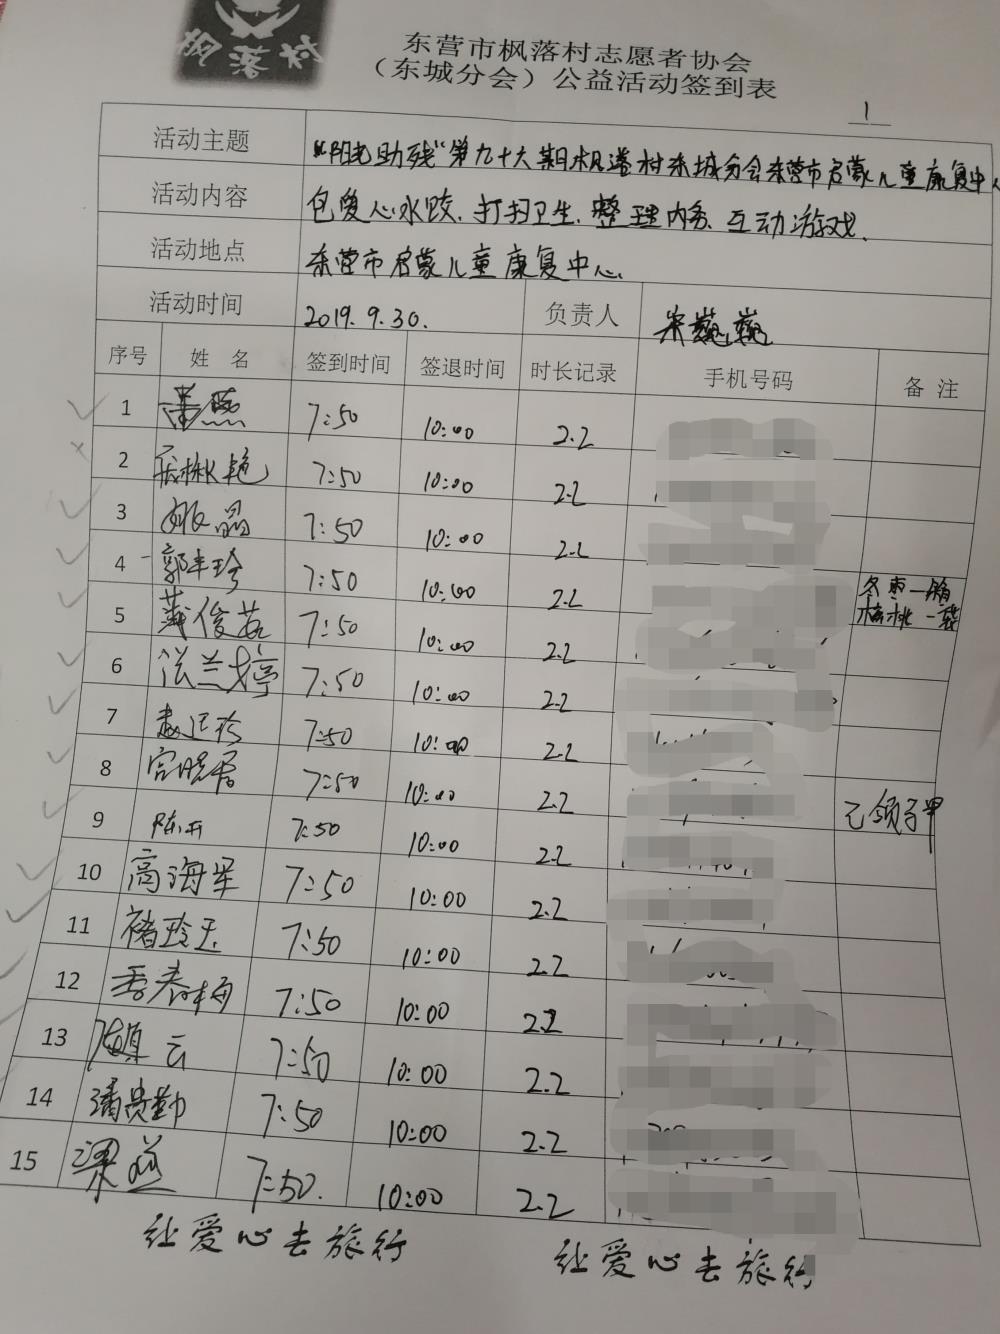 枫落村
东营市枫落村志愿者协会
（东城分会）公益活动签到表
1
活动主题 "阳光助残"第九十六期枫落村东城分会东营市启蒙儿童康复中心
活动内容 包爱心水饺、打扫卫生、整理内务、互动游戏.
活动地点 东营市启蒙儿童康复中心.
活动时间 2019.9.30. 负责人 宋巍巍
序号 姓 名 签到时间 签退时间 时长记录 手机号码 备 注
1 7:50 10:00 2.2
2 7:50 10:00 2.2
3 姚晶 7:50 10:00 2.2
4 郭丰珍 7:50 10:00 2.2 冬枣一箱
5 7:50 10:00 2.2 一袋
6 法兰婷 7:50 10:00 2.2
7 7:50 10:00 2.2
8 宫晓居 7:50 10:00 2.2
9 陈玉 7:50 10:00 2.2 已领马甲
10 高海军 7:50 10:00 2.2
11 褚玲玉 7:50 10:00 2.2
12 李春梅 7:50 10:00 2.2
13 7:50 10:00 2.2
14 潘贵勤 7:50 10:00 2.2
15 梁燕 7:50. 10:00 2.2
让爱心去旅行 让爱心去旅行